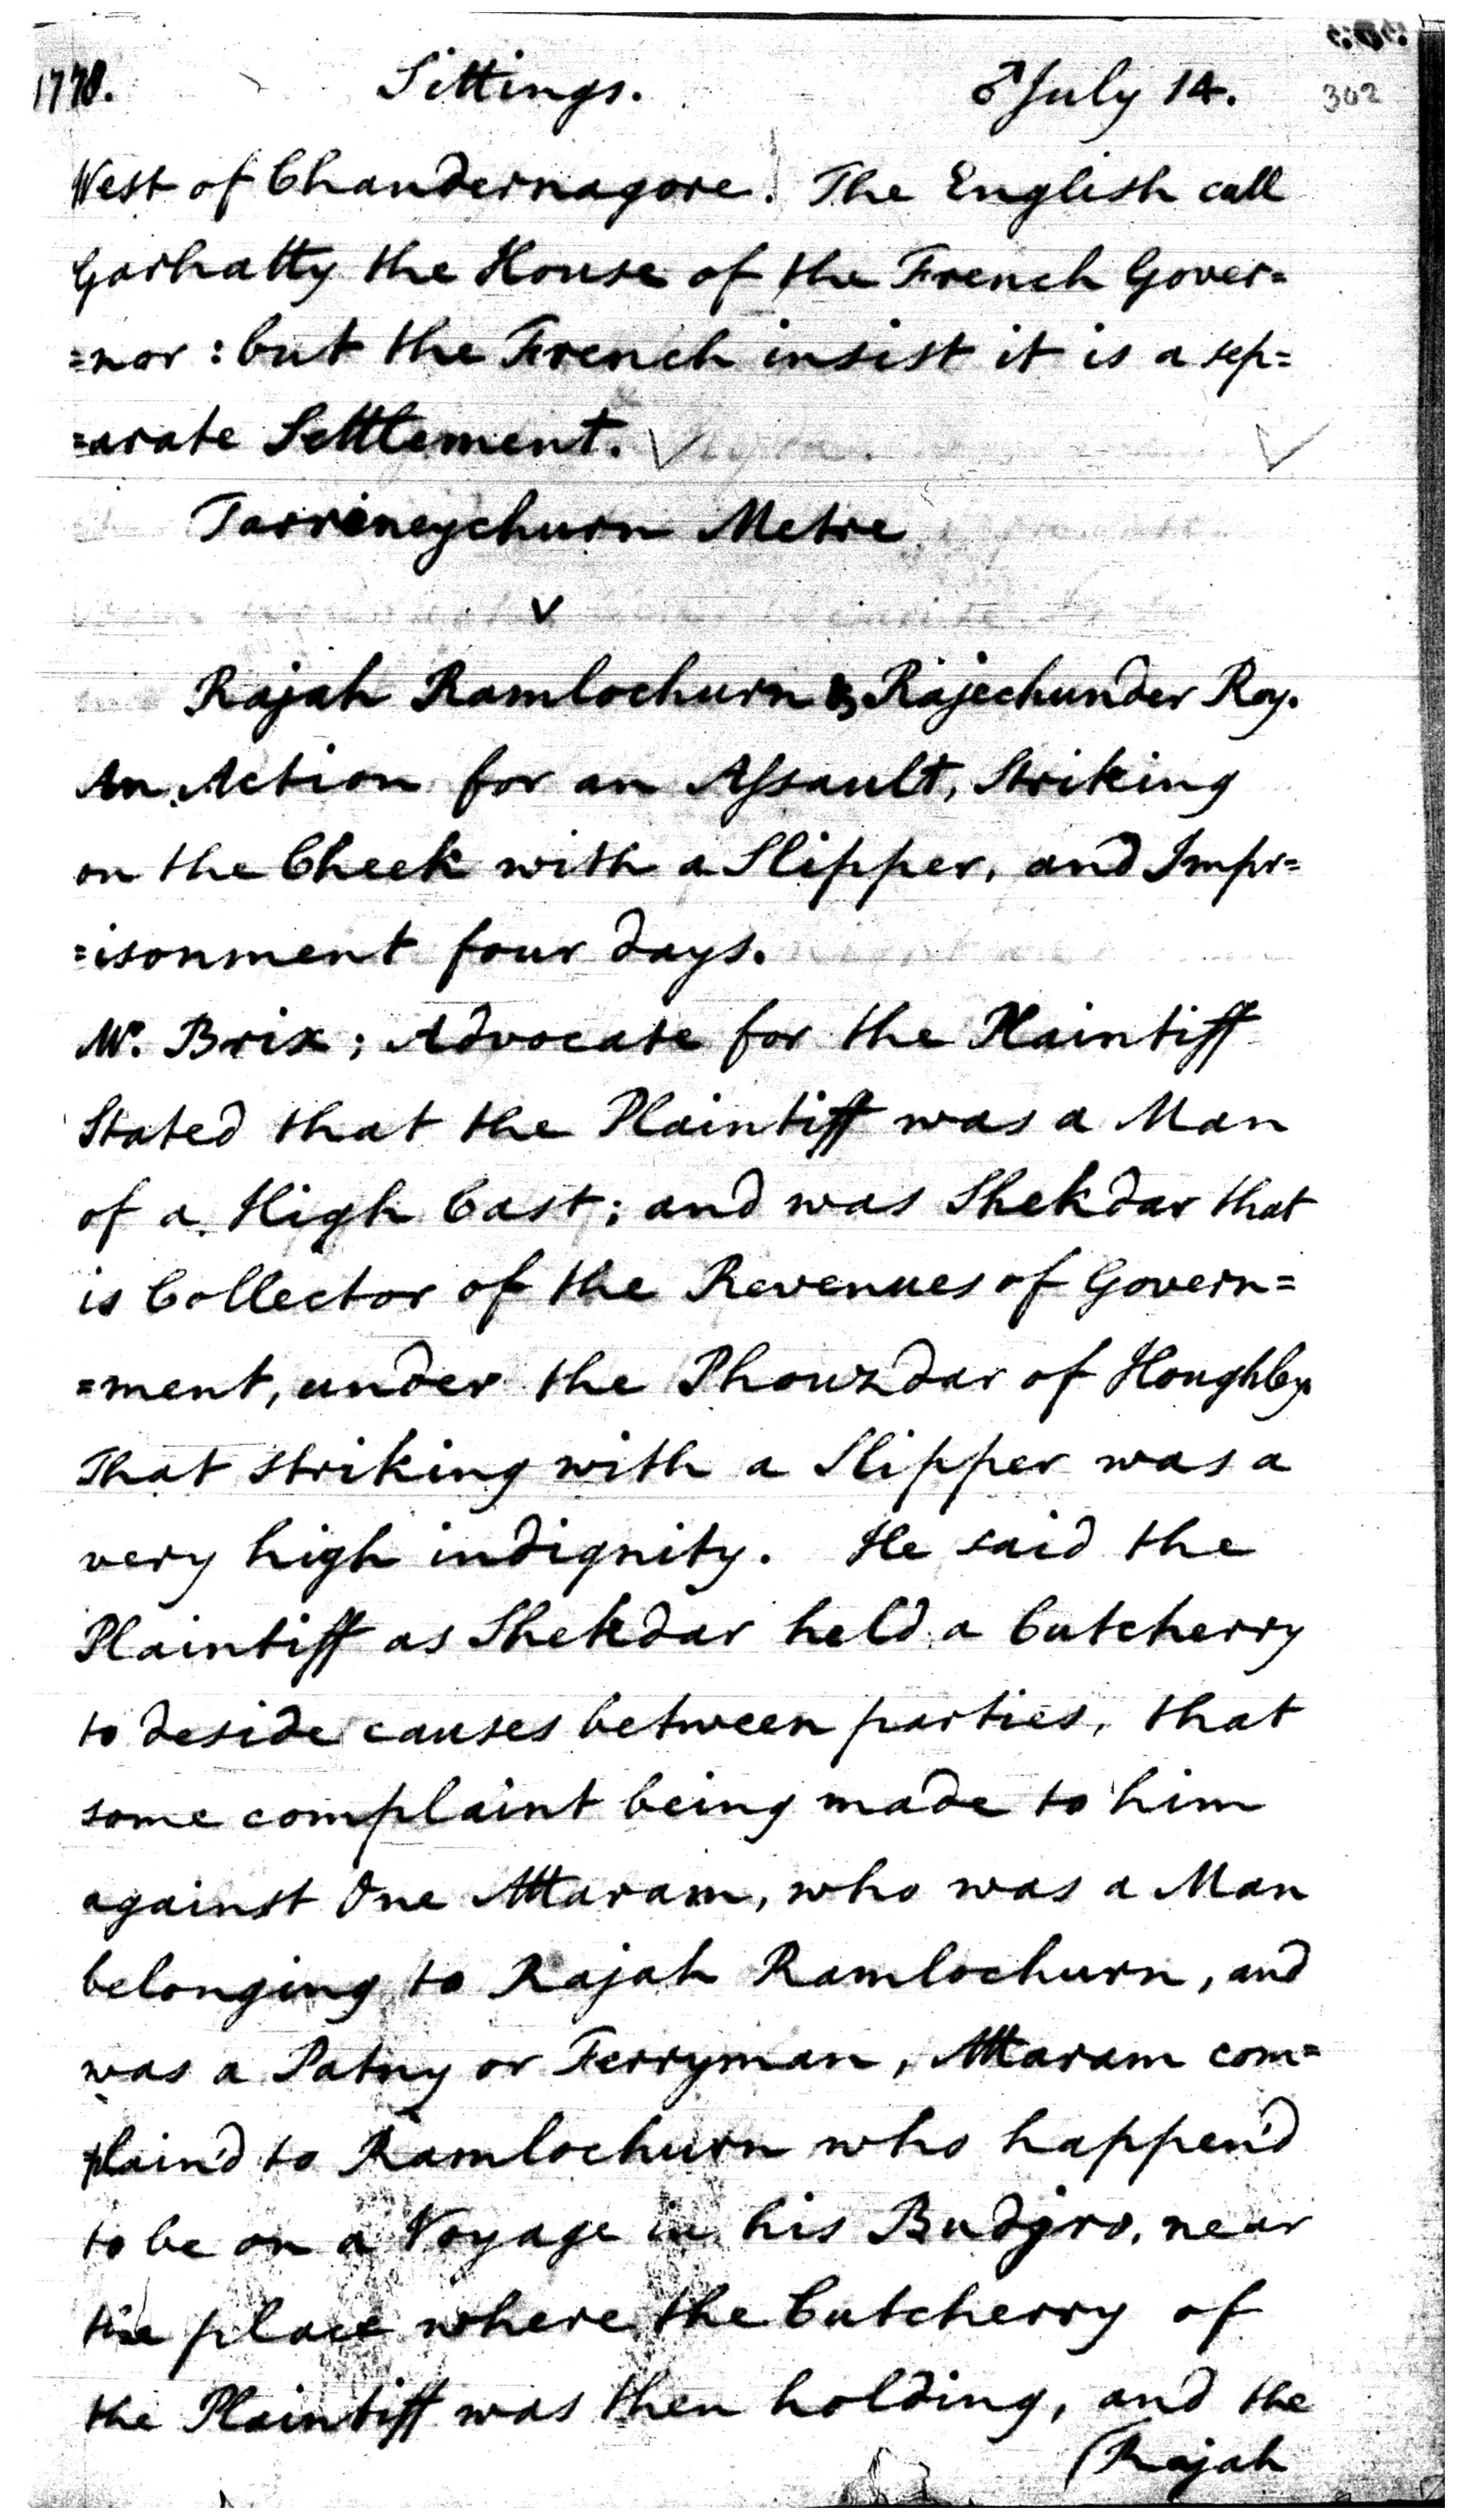 1778. Sittings. ♂ July 14. 302
West of Chandernagore. The English call
Garhatty the House of the French Gover=
=nor : but the French insist it is a sep=
=arate Settlement.
Tarrineychurn Metre
v
Rajah Ramlochurn & Rajechunder Roy.
An Action for an Assault, Striking
on the Cheek with a Slipper, and Impr=
=isonment four days.
Mr. Brix ; Advocate for the Plaintiff
Stated that the Plaintiff was a Man
of a High Cast ; and was Shekdar that
is Collector of the Revenues of Govern=
=ment, under the Phouzdar of Houghley
That striking with a Slipper was a
very high indignity. He said the
Plaintiff as Shekdar held a Cutcherry
to deside causes between parties, that
some complaint being made to him
against One Attaram, who was a Man
belonging to Rajah Ramlochurn, and
was a Patny or Ferryman, Attaram com=
plain'd to Ramlochurn who happen'd
to be on a Voyage in his Budjro, near
the place where the Cutcherry of
the Plaintiff was then holding, and the
(Rajah